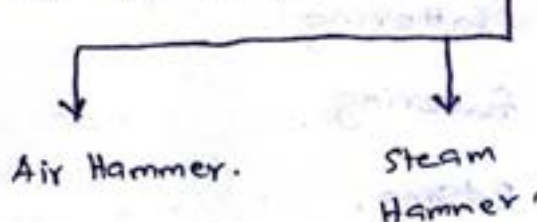 Air Hammer.
Steam
Hammer.